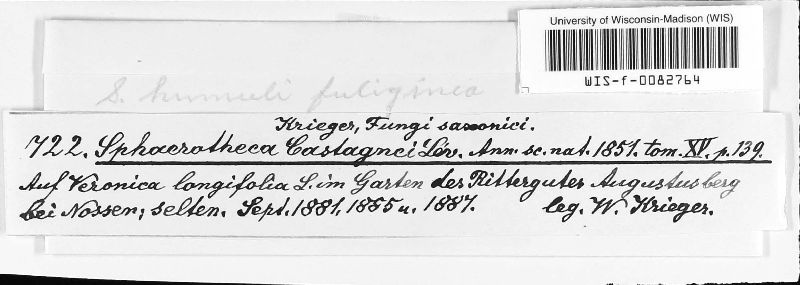 University of Wisconsin-Madison (WIS)
WIS-f-0082764
S. humuli fuliginea
Krieger, Fungi saxonici.
722. Sphaerotheca Castagnei Lév. Ann. sc. nat. 1851. tom. XV. p. 139.
Auf Veronica longifolia L. im Garten des Rittergutes Augustusberg
bei Nossen; selten. Sept. 1881, 1885 u. 1887. leg. W. Krieger.